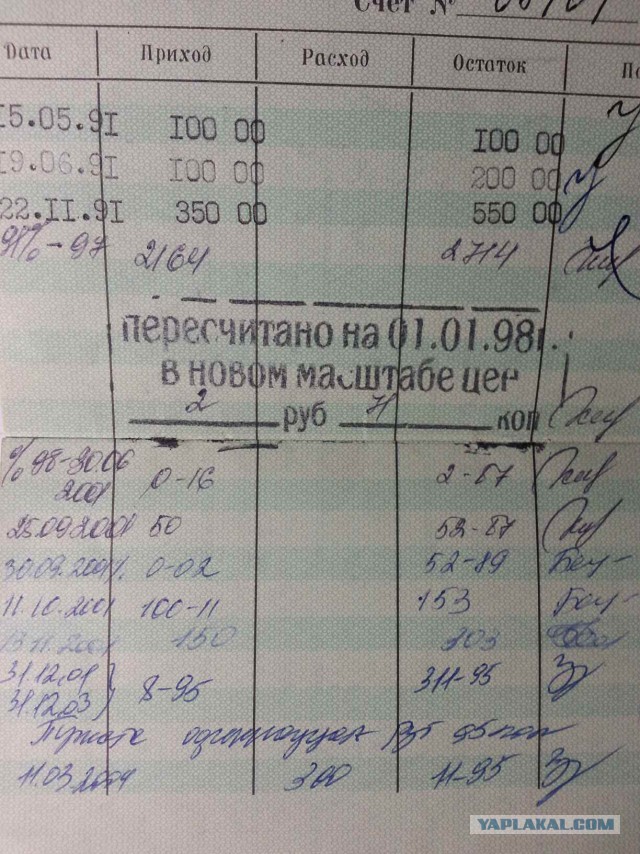 Счет №
Дата Приход Расход Остаток
15.05.9I I00 00 I00 00
I9.06.9I I00 00 200 00
22.II.9I 350 00 550 00
91%-97 2164 2714
пересчитано на 01.01.98г.
в новом масштабе цен
2 руб 71 коп
% 98-30.06
2001 0-16 2-87
25.09.2001 50 52-87
30.09.2001 % 0-02 52-89
11.10.2001 100-11 153
13.11.2001 150 303
31.12.01
31.12.03 8-95 311-95
11.03.2004 300 11-95
YAPLAKAL.COM